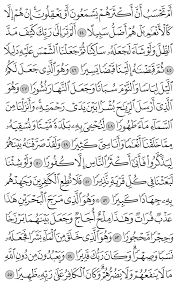 أَمْ تَحْسَبُ أَنَّ أَكْثَرَهُمْ يَسْمَعُونَ أَوْ يَعْقِلُونَ ۚ إِنْ هُمْ إِلَّا
كَٱلْأَنْعَٰمِ ۖ بَلْ هُمْ أَضَلُّ سَبِيلًا ٤٤ أَلَمْ تَرَ إِلَىٰ رَبِّكَ كَيْفَ مَدَّ
ٱلظِّلَّ وَلَوْ شَآءَ لَجَعَلَهُۥ سَاكِنًا ثُمَّ جَعَلْنَا ٱلشَّمْسَ عَلَيْهِ دَلِيلًا
٤٥ ثُمَّ قَبَضْنَٰهُ إِلَيْنَا قَبْضًا يَسِيرًا ٤٦ وَهُوَ ٱلَّذِى جَعَلَ لَكُمُ
ٱلَّيْلَ لِبَاسًا وَٱلنَّوْمَ سُبَاتًا وَجَعَلَ ٱلنَّهَارَ نُشُورًا ٤٧ وَهُوَ
ٱلَّذِىٓ أَرْسَلَ ٱلرِّيَٰحَ بُشْرًۢا بَيْنَ يَدَىْ رَحْمَتِهِۦ ۚ وَأَنزَلْنَا مِنَ
ٱلسَّمَآءِ مَآءً طَهُورًا ٤٨ لِّنُحْۦِىَ بِهِۦ بَلْدَةً مَّيْتًا وَنُسْقِيَهُۥ
مِمَّا خَلَقْنَآ أَنْعَٰمًا وَأَنَاسِىَّ كَثِيرًا ٤٩ وَلَقَدْ صَرَّفْنَٰهُ بَيْنَهُمْ
لِيَذَّكَّرُوا۟ فَأَبَىٰٓ أَكْثَرُ ٱلنَّاسِ إِلَّا كُفُورًا ٥٠ وَلَوْ شِئْنَا
لَبَعَثْنَا فِى كُلِّ قَرْيَةٍ نَّذِيرًا ٥١ فَلَا تُطِعِ ٱلْكَٰفِرِينَ وَجَٰهِدْهُم
بِهِۦ جِهَادًا كَبِيرًا ٥٢ وَهُوَ ٱلَّذِى مَرَجَ ٱلْبَحْرَيْنِ هَٰذَا
عَذْبٌ فُرَاتٌ وَهَٰذَا مِلْحٌ أُجَاجٌ وَجَعَلَ بَيْنَهُمَا بَرْزَخًا
وَحِجْرًا مَّحْجُورًا ٥٣ وَهُوَ ٱلَّذِى خَلَقَ مِنَ ٱلْمَآءِ بَشَرًا فَجَعَلَهُۥ
نَسَبًا وَصِهْرًا ۗ وَكَانَ رَبُّكَ قَدِيرًا ٥٤ وَيَعْبُدُونَ مِن دُونِ ٱللَّهِ
مَا لَا يَنفَعُهُمْ وَلَا يَضُرُّهُمْ ۗ وَكَانَ ٱلْكَافِرُ عَلَىٰ رَبِّهِۦ ظَهِيرًا ٥٥